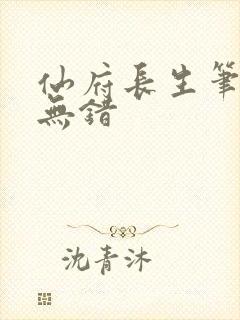 仙府長生筆
無錯
沈青沐